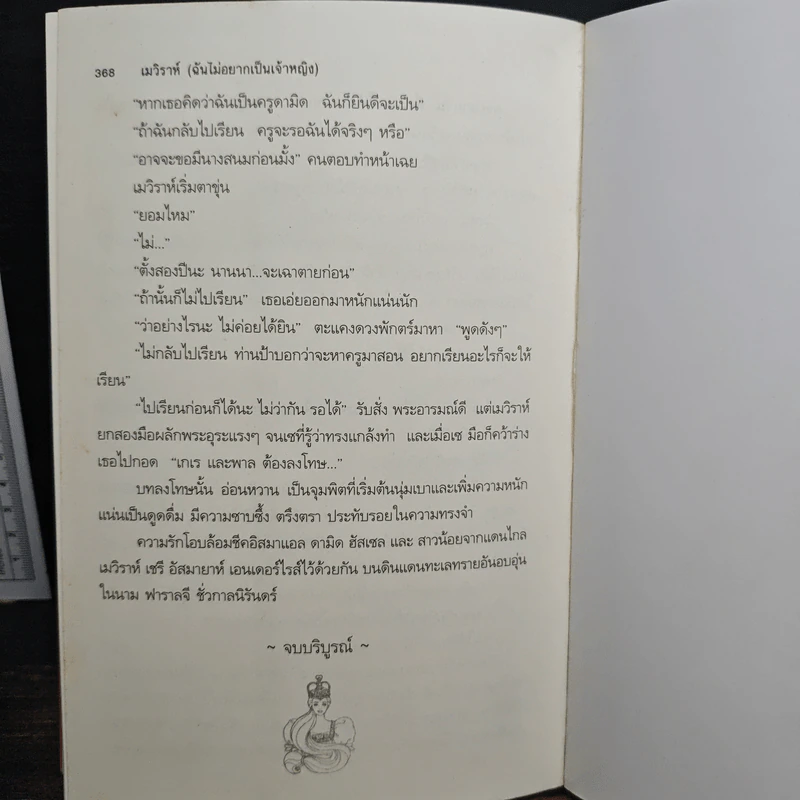 368 เมวิราห์ (ฉันไม่อยากเป็นเจ้าหญิง)
“หากเธอคิดว่าฉันเป็นครูดามิด ฉันก็ยินดีจะเป็น”
“ถ้าฉันกลับไปเรียน ครูจะรอฉันได้จริงๆ หรือ”
“อาจจะขอมีนางสนมก่อนมั้ง” คนตอบทำหน้าเฉย
เมวิราห์เริ่มตาขุ่น
“ยอมไหม”
“ไม่...”
“ตั้งสองปีนะ นานนา...จะเฉาตายก่อน”
“ถ้านั้นก็ไม่ไปเรียน” เธอเอ่ยออกมาหนักแน่นนัก
“ว่าอย่างไรนะ ไม่ค่อยได้ยิน” ตะแคงดวงพักตร์มาหา “พูดดังๆ”
“ไม่กลับไปเรียน ท่านป้าบอกว่าจะหาครูมาสอน อยากเรียนอะไรก็จะให้
เรียน”
“ไปเรียนก่อนก็ได้นะ ไม่ว่ากัน รอได้” รับสั่ง พระอารมณ์ดี แต่เมวิราห์
ยกสองมือผลักพระอุระแรงๆ จนเซที่รู้ว่าทรงแกล้งทำ และเมื่อเซ มือก็คว้าร่าง
เธอไปกอด “เกเร และพาล ต้องลงโทษ...”
บทลงโทษนั้น อ่อนหวาน เป็นจุมพิตที่เริ่มต้นนุ่มเบาและเพิ่มความหนัก
แน่นเป็นดูดดื่ม มีความซาบซึ้ง ตรึงตรา ประทับรอยในความทรงจำ
ความรักโอบล้อมชีคอิสมาแอล ดามิด ฮัสเซล และ สาวน้อยจากแดนไกล
เมวิราห์ เชรี อัสมายาห์ เอนเดอร์ไรส์ไว้ด้วยกัน บนดินแดนทะเลทรายอันอบอุ่น
ในนาม ฟาราลจี ชั่วกาลนิรันดร์
~ จบบริบูรณ์ ~